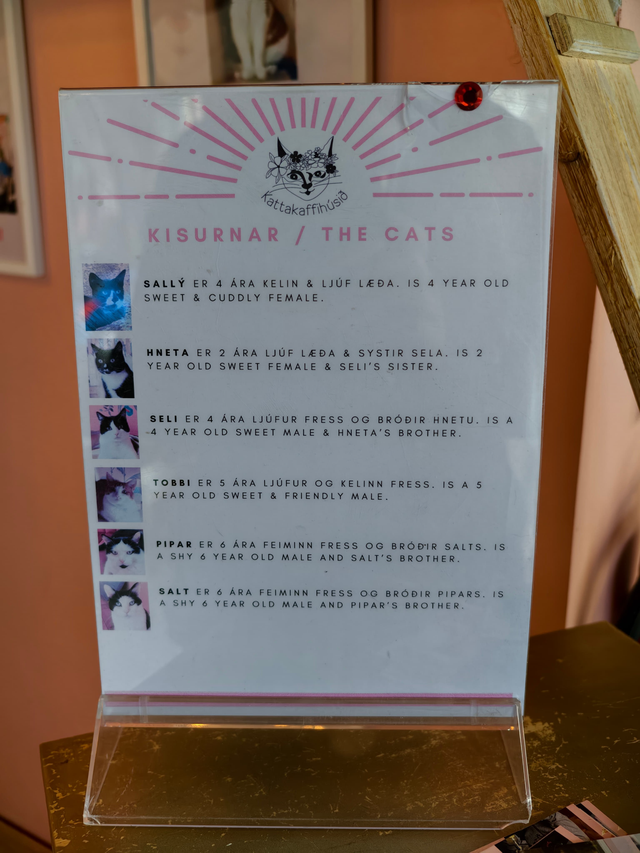 Kattakaffihúsið
KISURNAR / THE CATS
SALLÝ ER 4 ÁRA KELIN & LJÚF LÆÐA. IS 4 YEAR OLD
SWEET & CUDDLY FEMALE.
HNETA ER 2 ÁRA LJÚF LÆÐA & SYSTIR SELA. IS 2
YEAR OLD SWEET FEMALE & SELI'S SISTER.
SELI ER 4 ÁRA LJÚFUR FRESS OG BRÓÐIR HNETU. IS A
4 YEAR OLD SWEET MALE & HNETA'S BROTHER.
TOBBI ER 5 ÁRA LJÚFUR OG KELINN FRESS. IS A 5
YEAR OLD SWEET & FRIENDLY MALE.
PIPAR ER 6 ÁRA FEIMINN FRESS OG BRÓÐIR SALTS. IS
A SHY 6 YEAR OLD MALE AND SALT'S BROTHER.
SALT ER 6 ÁRA FEIMINN FRESS OG BRÓÐIR PIPARS. IS
A SHY 6 YEAR OLD MALE AND PIPAR'S BROTHER.